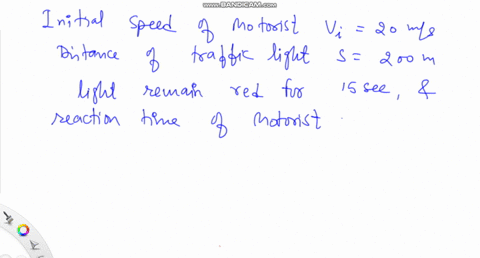 WWW.BANDICAM.COM
Initial speed of motorist Vi = 20 m/s
Distance of traffic light S = 200 m
light remain red for 15 sec, &
reaction time of motorist